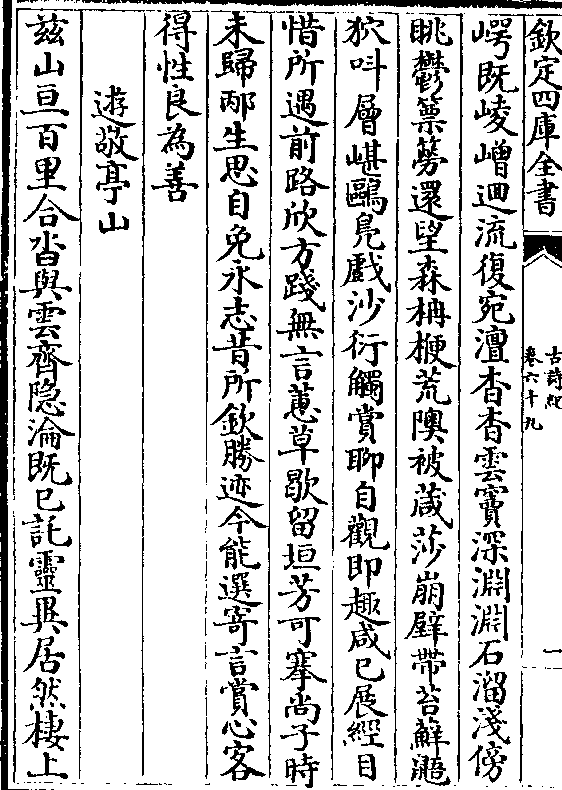 欽定四庫全書
古詩紀
卷六十九
一
崿既崚嶒迴流復宛澶杳杳雲竇深淵淵石溜淺傍
眺鬱篻簩還望森柟楩荒隩被葴莎崩壁帶苔蘚鼯
狖叫層嵁鷗鳧戲沙衍觸賞聊自觀即趣咸已展經目
惜所遇前路欣方踐無言蕙草歇留垣芳可搴尚子時
未歸邴生思自免永志昔所欽勝迹今能選寄言賞心客
得性良為善
遊敬亭山
茲山亘百里合沓與雲齊隱淪既已託靈異居然棲上